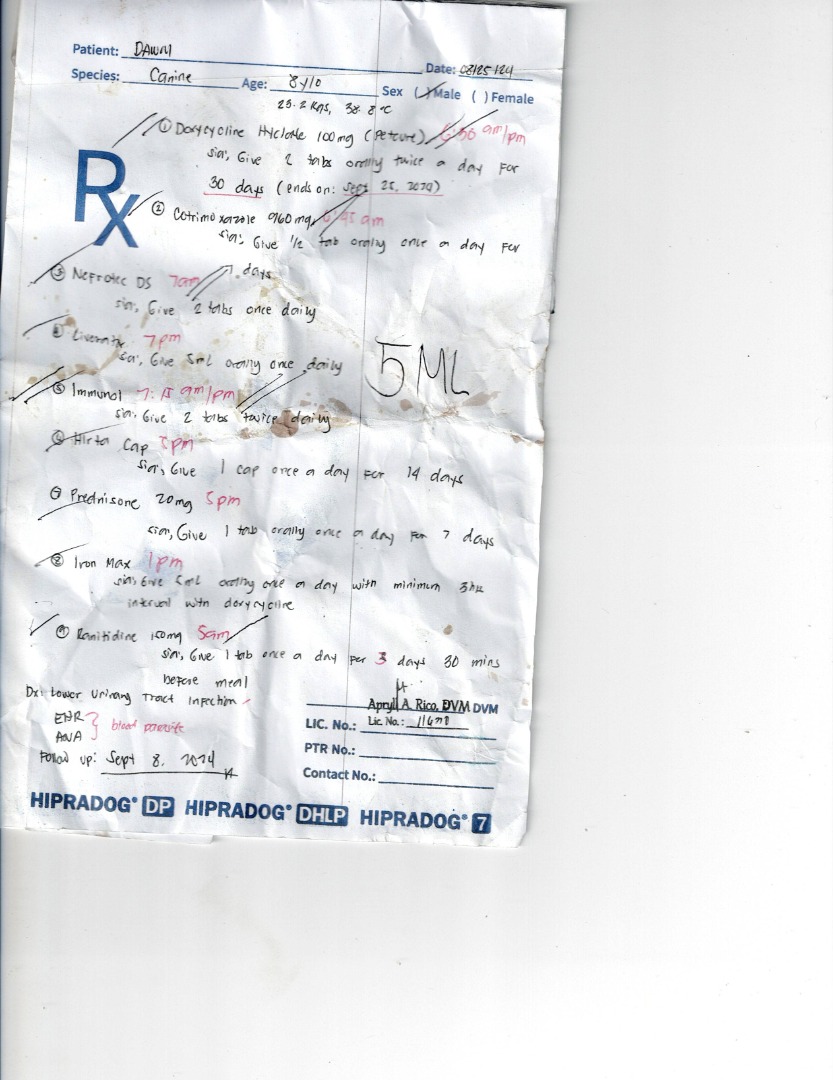 Patient: DAWN
Date: 08/25/24
Species: Canine Age: 8y/o Sex ( ) Male ( ) Female
25.2 Kgs, 38.8°C
Rx
① Doxycycline Hyclate 100mg (Petcure) am/pm
sig: Give 2 tabs orally twice a day for
30 days (ends on: Sept 25, 2024)
② Cotrimoxazole 960mg 45 am
sig: Give 1/2 tab orally once a day for
7 days
③ Nefrotec DS 7am
sig: Give 2 tabs once daily
④ 7pm
sig: Give 5mL orally once daily
5 ML
⑤ Immunol 7:15 am/pm
sig: Give 2 tabs twice daily
⑥ Cap 5pm
sig: Give 1 cap once a day for 14 days
⑦ Prednisone 20mg 5pm
sig: Give 1 tab orally once a day for 7 days
⑧ Iron Max 1pm
sig: Give 5mL orally once a day with minimum 3hr
interval with doxycycline
⑨ Ranitidine 150mg 5am
sig: Give 1 tab once a day for 3 days 30 mins
before meal
Dx: Lower Urinary Tract Infection
EHR
ANA } blood parasite
Follow up: Sept 8, 2024
Apryll A. Rico, DVM DVM
LIC. No.: Lic. No.:
PTR No.:
Contact No.:
HIPRADOG® DP HIPRADOG® DHLP HIPRADOG® 7